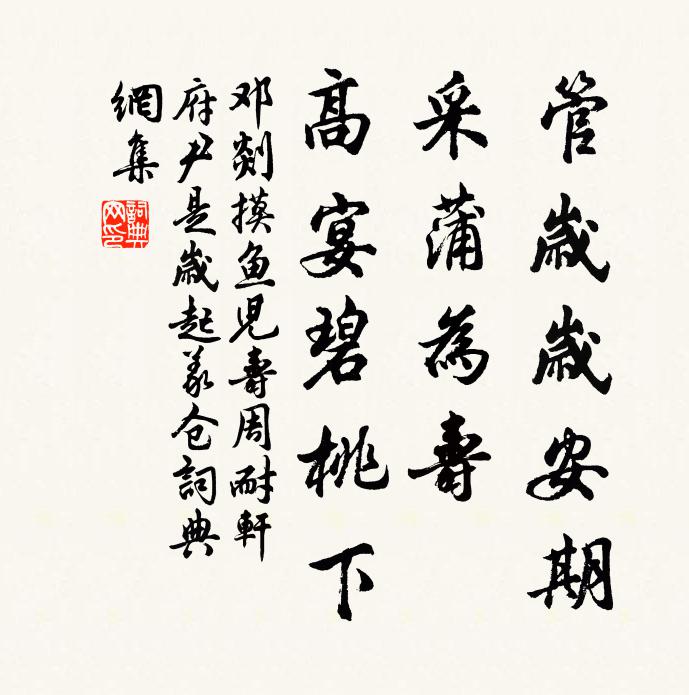 管歲歲安期
采蒲為壽
高宴碧桃下
邓剡摸鱼児壽周耐軒
府尹是歲起義仓詞典
網集
詞典網印